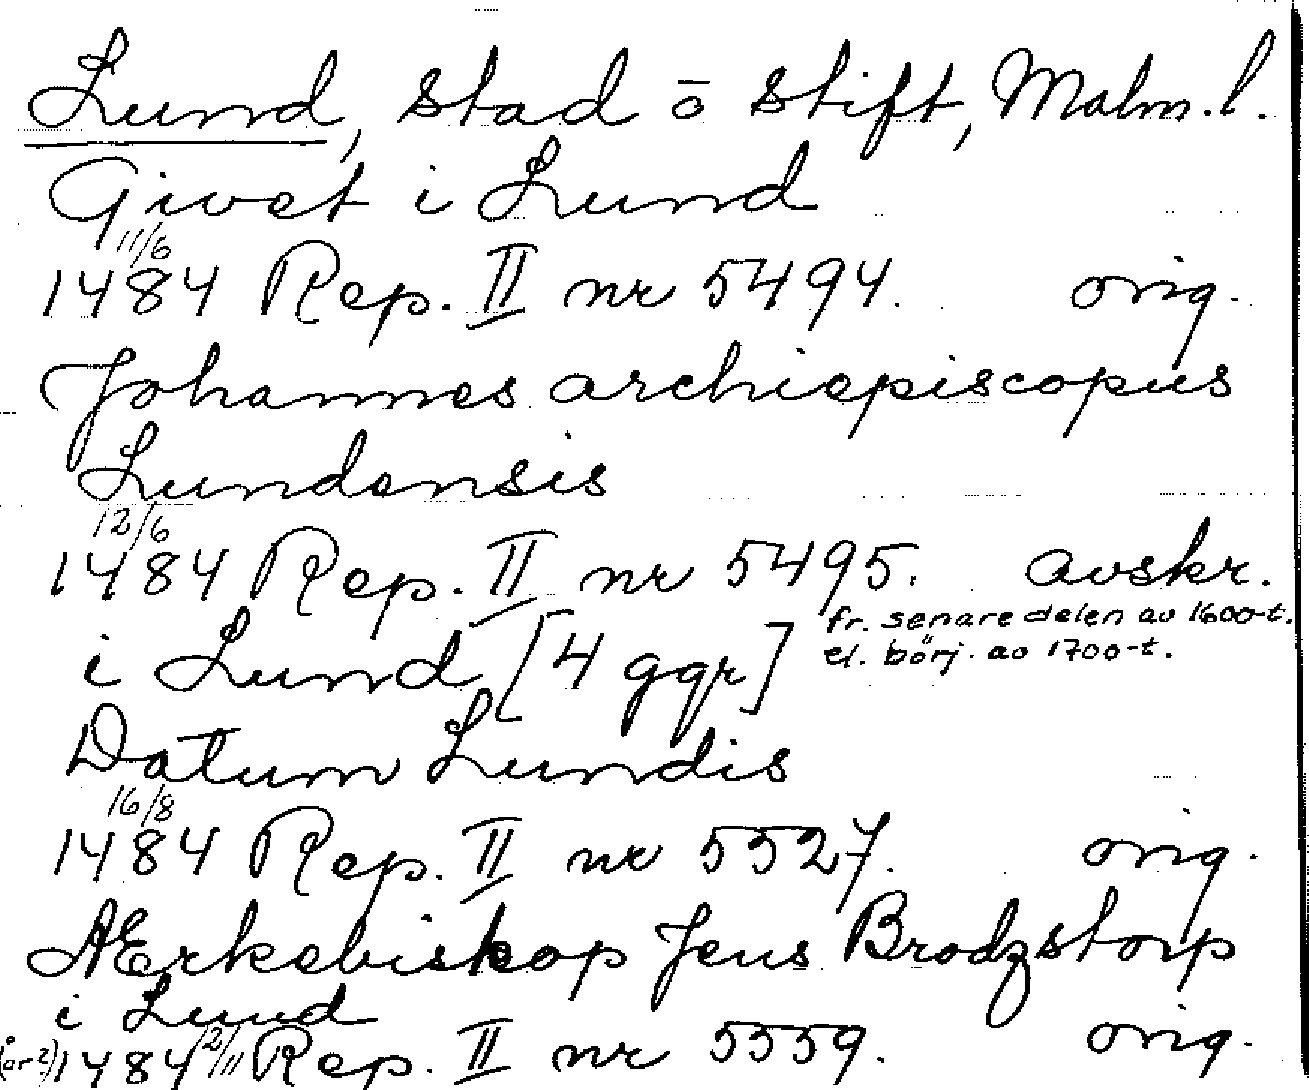 Lund, stad o stift, Malm. l.
Givet i Lund
11/6
1484 Rep. II nr 5494. orig.
Johannes archiepiscopus
Lundensis
12/6
1484 Rep. II nr 5495. avskr.
fr. senare delen av 1600-t.
i Lund [4 ggr] el. börj. av 1700-t.
Datum Lundis
16/8
1484 Rep. II nr 5527. orig.
Ærkebiskop Jens Brodzstorp
i Lund
(år?) 1484 2/11 Rep. II nr 5559. orig.